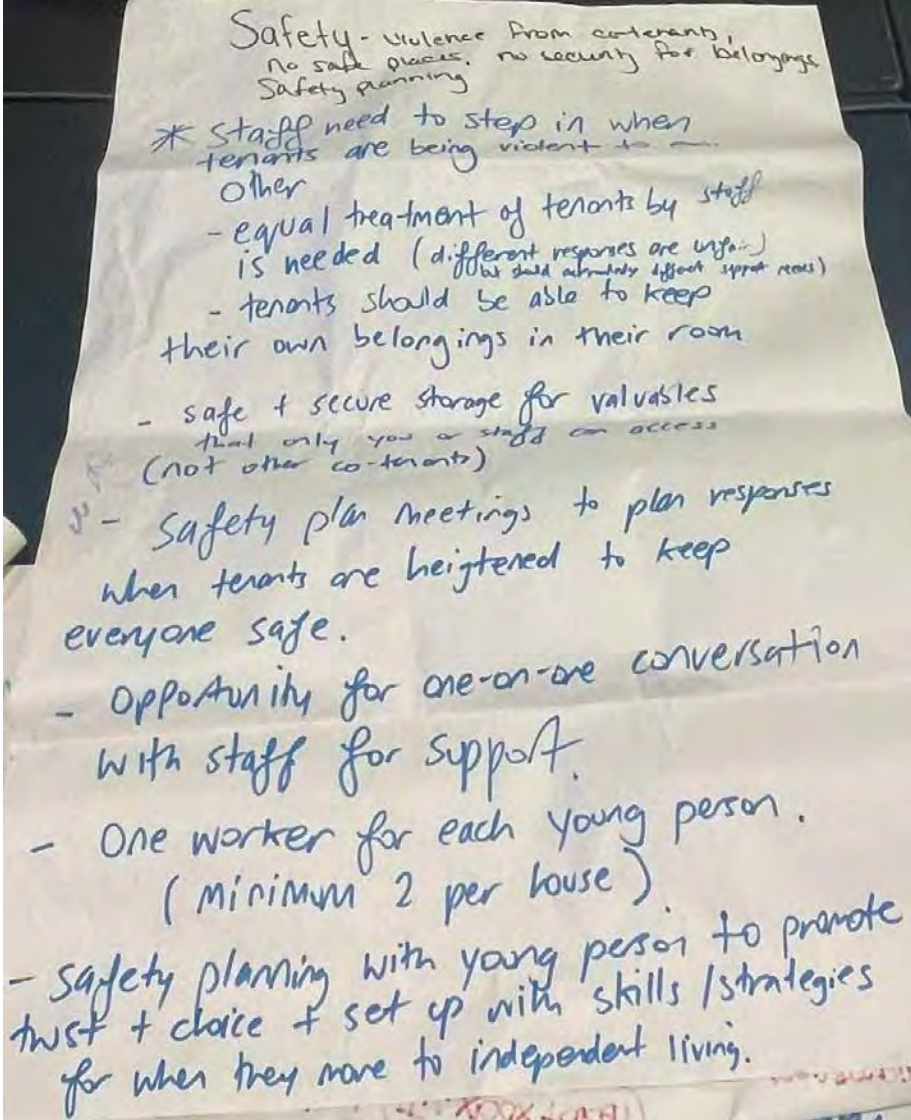 Safety - violence from cotenants,
no safe places. no security for belongings
Safety planning
* Staff need to step in when
tenants are being violent to
other
- equal treatment of tenants by staff
is needed (different responses are unfair)
but should different support needs)
- tenants should be able to keep
their own belongings in their room
- safe + secure storage for valuables
that only you or staff can access
(not other co-tenants)
- Safety plan meetings to plan responses
when tenants are heigtened to keep
everyone safe.
- Opportunity for one-on-one conversation
with staff for support.
- One worker for each young person.
(minimum 2 per house)
- Safety planning with young person to promote
trust + choice + set up with skills / strategies
for when they move to independent living.